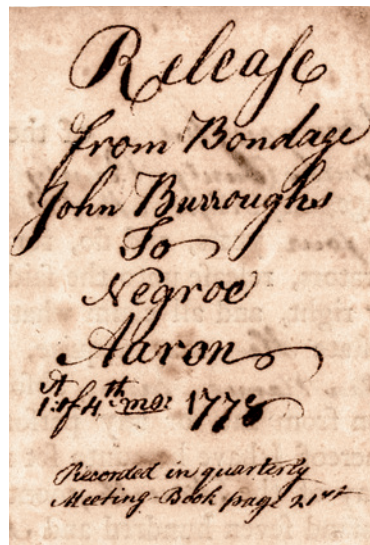 Releaſe
from Bondage
John Burroughs
To
Negroe
Aaron
1st of 4th mo: 1778
Recorded in quarterly
Meeting-Book page 21st